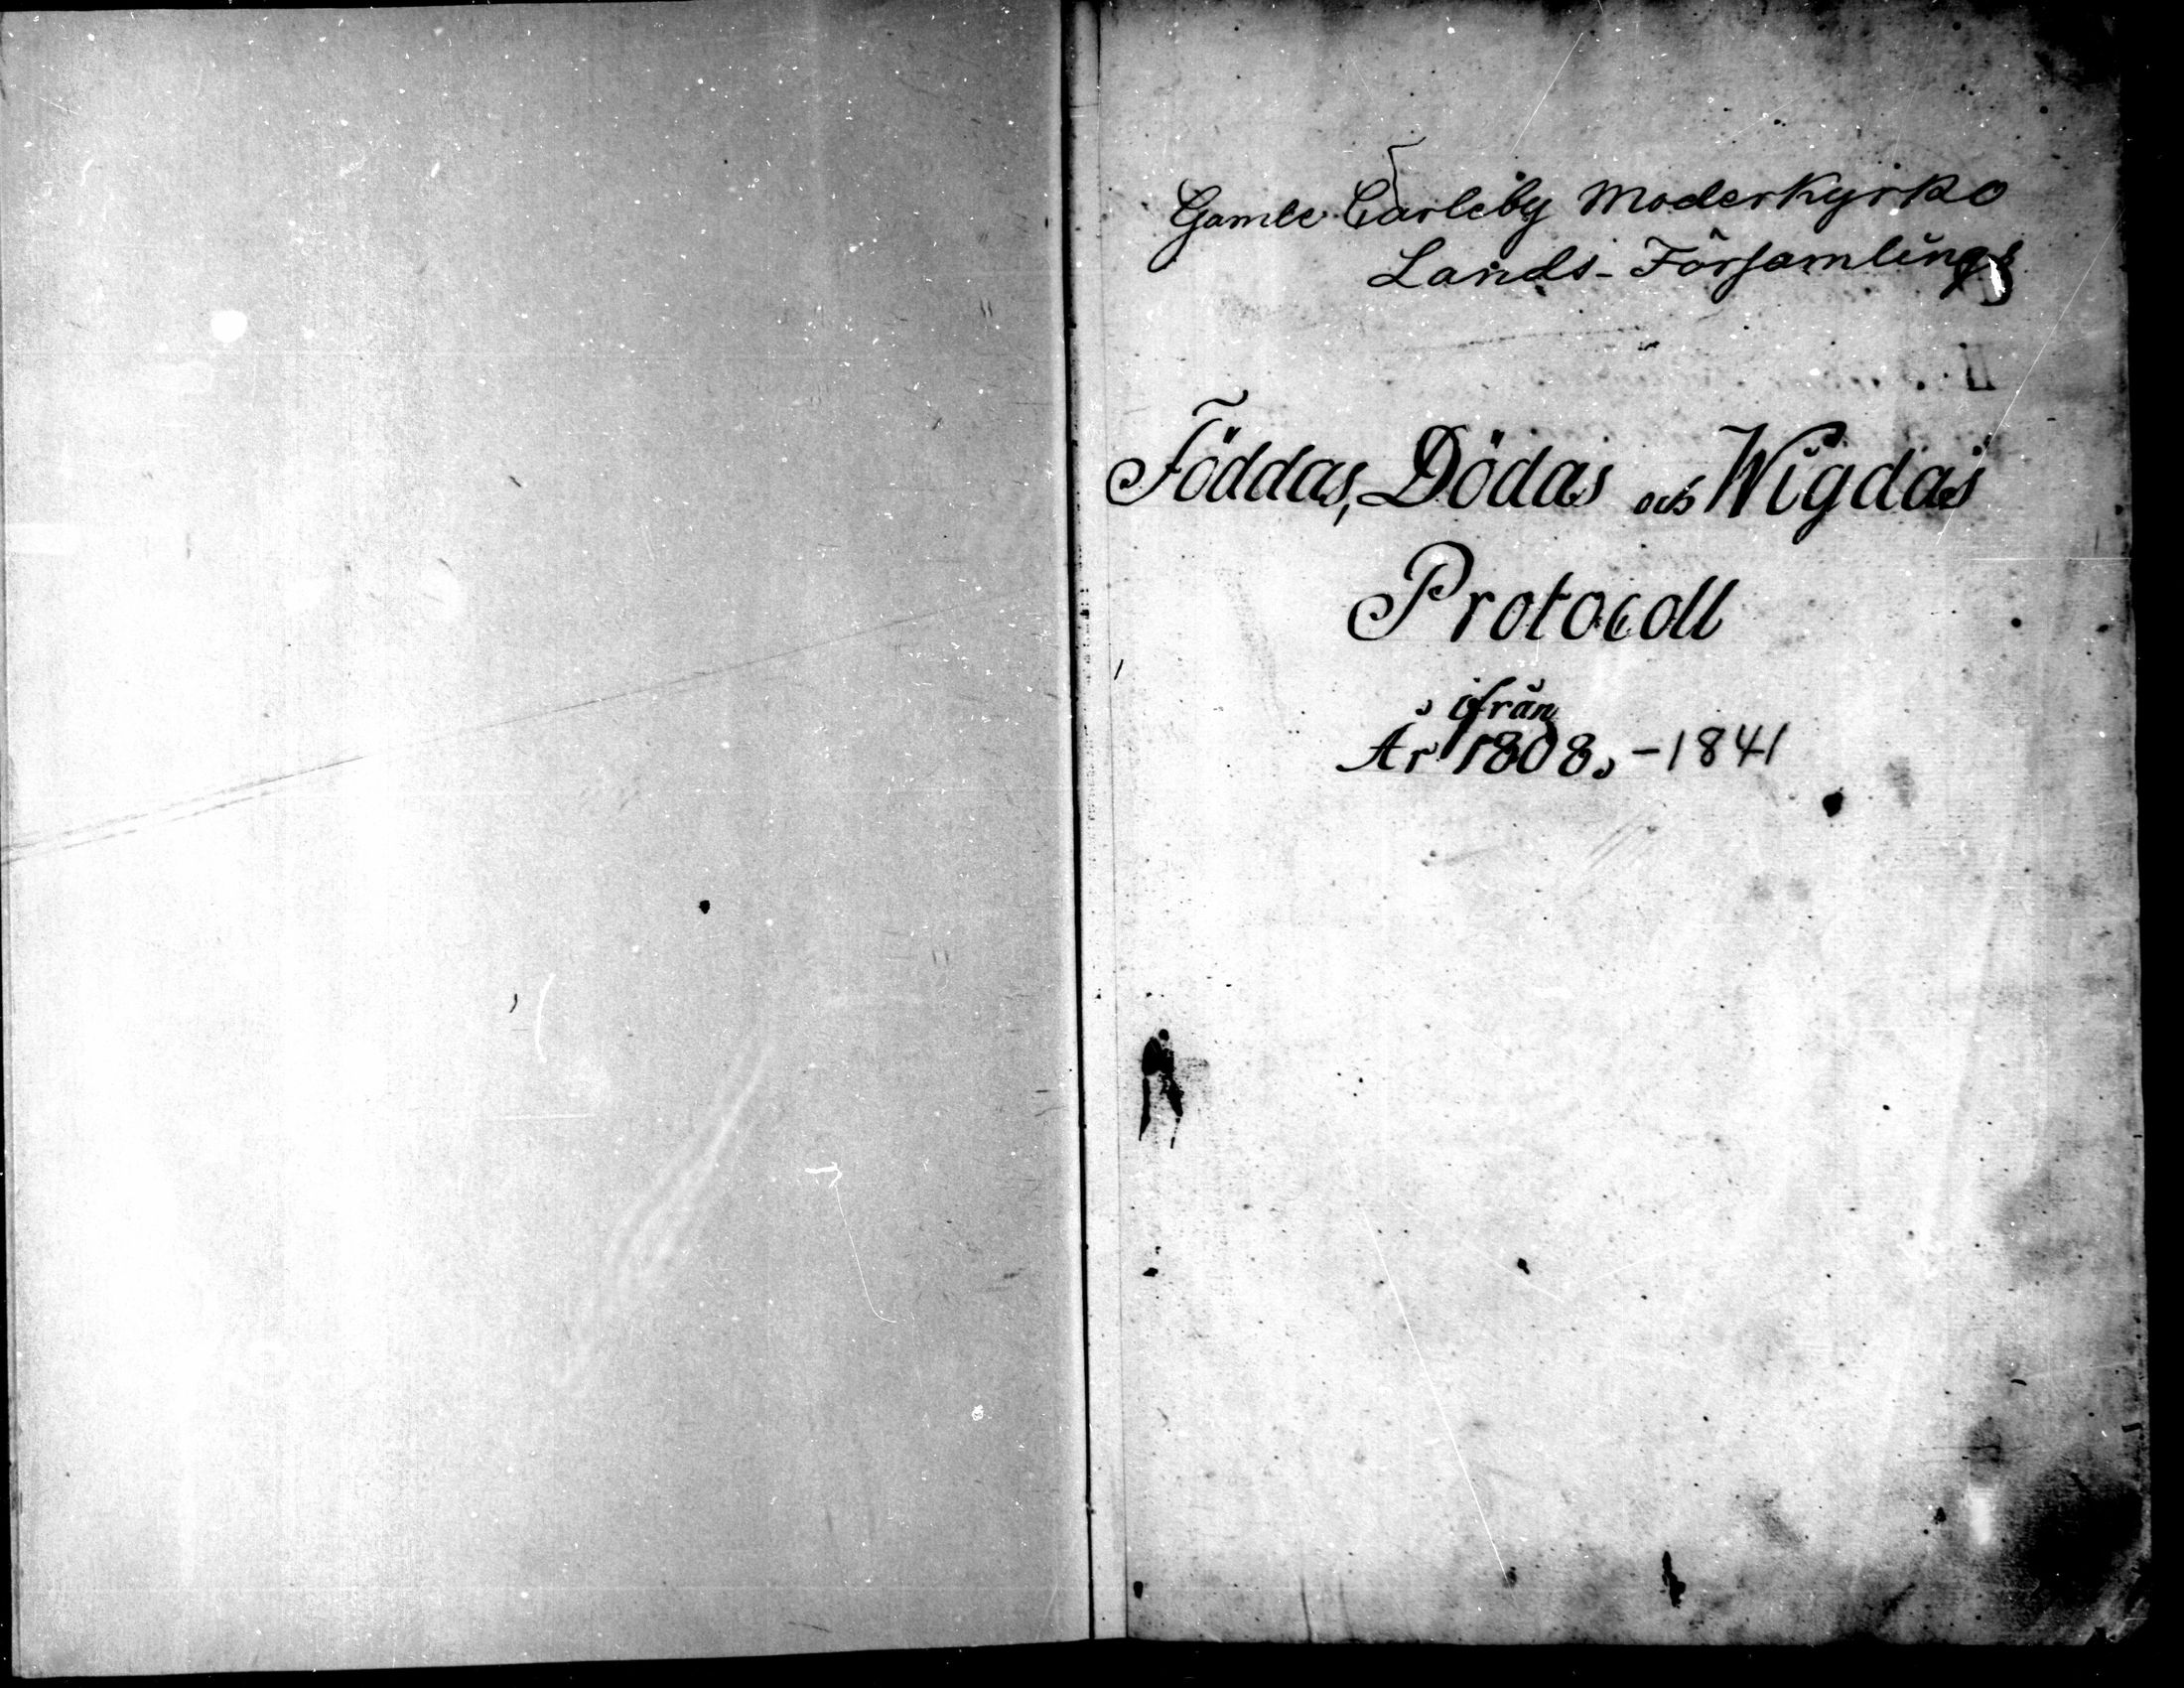 Gamle Carleby Moderkyrko
Lands-Församlings
Föddas, Dödas och Wigdas
Protocoll
ifrån
År 1808. -1841